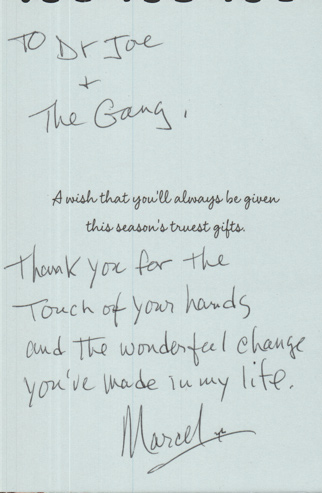 To Dr Joe
+
The Gang.
A wish that you'll always be given
this season's truest gifts.
Thank you for the
Touch of your hands
and the wonderful change
you've made in my life.
Marcel